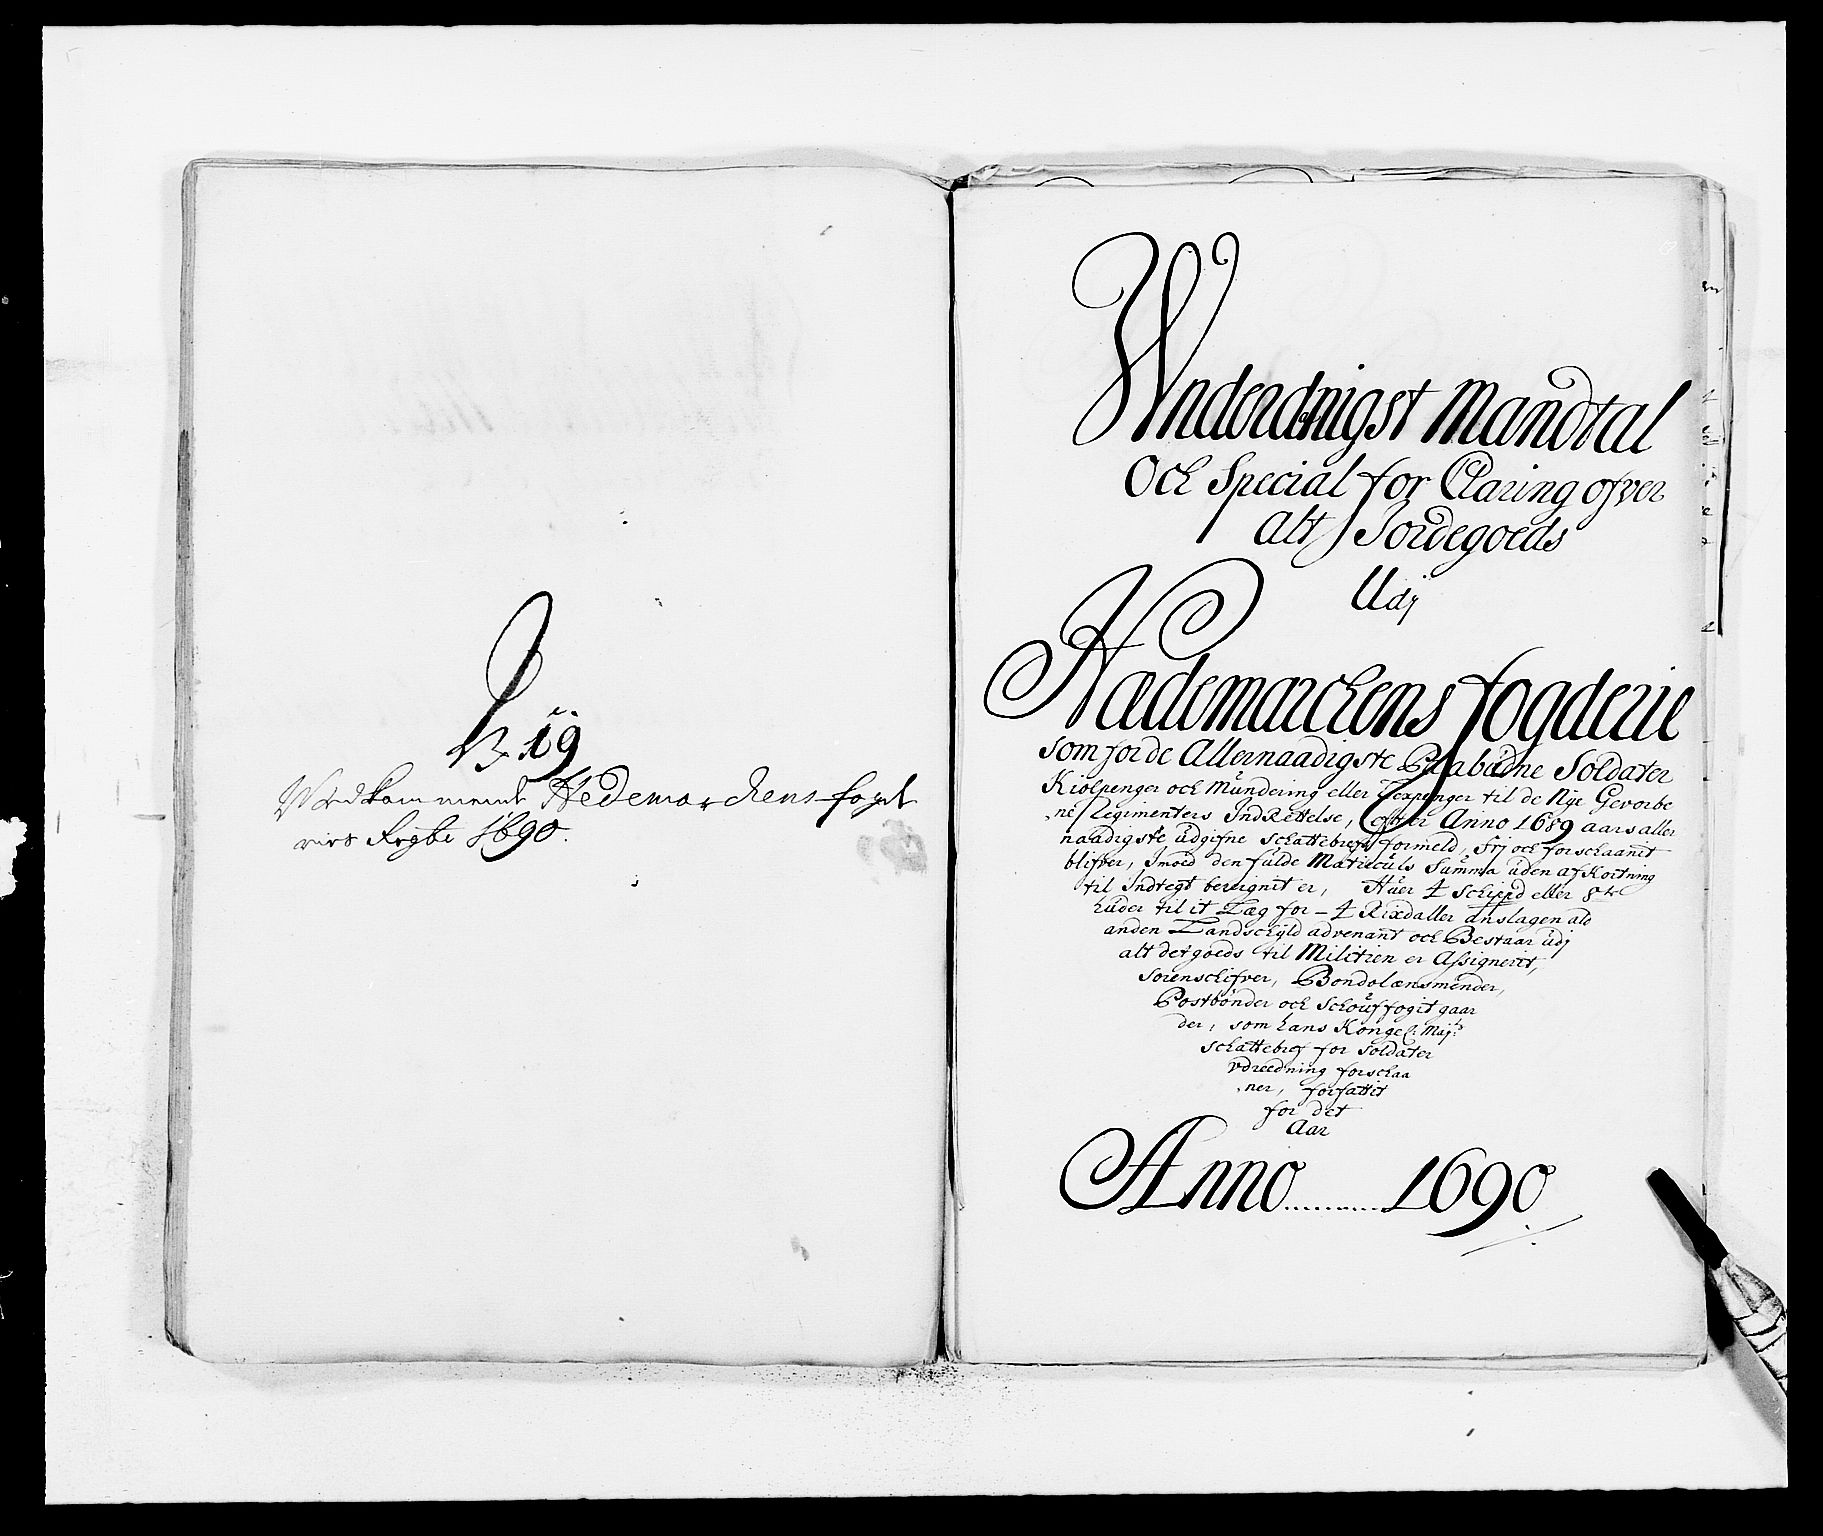 N. 19
Vedkommende Hedemarchens fogde
ries Regbr 1690.
Wnderdnigst Mandtal
Och Special for Claring ofver
alt Jordegoeds
Udj
Hædemarchens fogderie
som for de Allernaadigste Paabudne Soldater
Kiolpenger och Mundering eller Texpenger til de Nye Gevorbe
ne Regimenters IndRettelse, efter Anno 1689 aars aller
naadigste udgifne schattebrefs formeld, frj och forschaanit
blifver, Imod den fulde Matriculs Summa uden afKortning
til Indtegt beregnit er, Huer 4 Schippd eller 8te
huder til it Læg for - 4 Rixdaller anslagen alt
anden Landschyld advenant och Bestaar udj
alt det goeds til Militien er Assigneret,
Sorenschrifver, Bondolænsmender,
Postbønder och Schouffogit gaar
der, som hans Kongel: Mayts:
schattebref for Soldater
vdreedning forschaa
ner, forfattit
for det
Aar
Anno..........1690